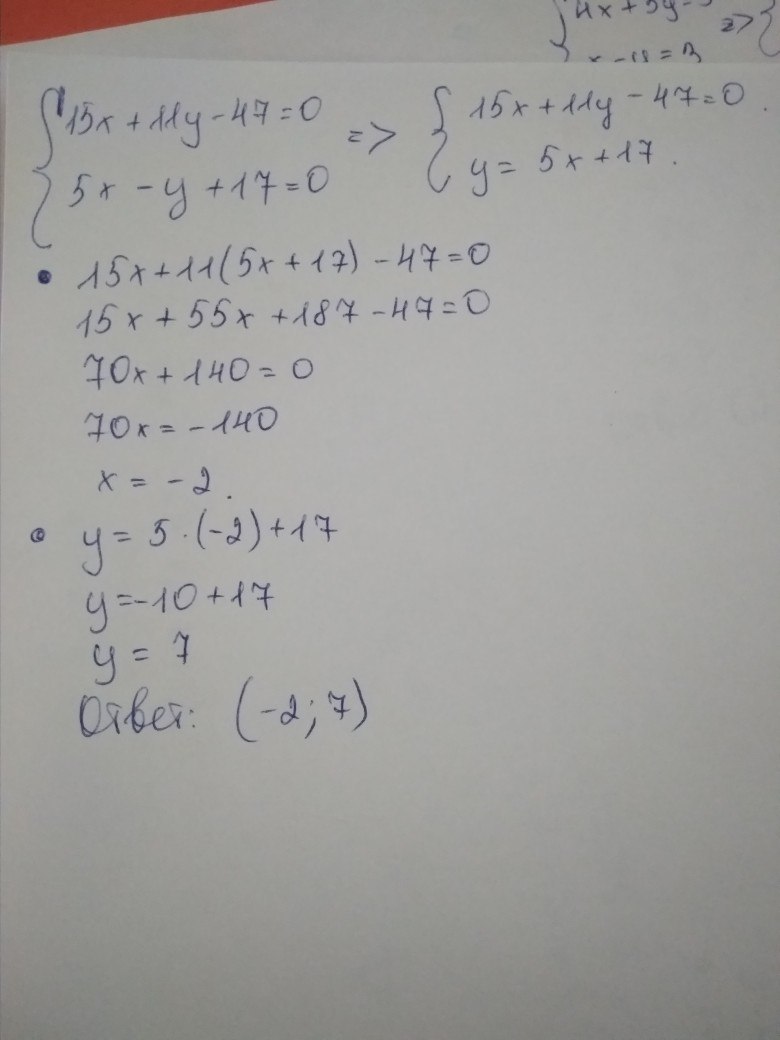 4x + 5y
=>
x - y = 3
15x + 11y - 47 = 0 => 15x + 11y - 47 = 0
5x - y + 17 = 0 y = 5x + 17.
• 15x + 11(5x + 17) - 47 = 0
15x + 55x + 187 - 47 = 0
70x + 140 = 0
70x = -140
x = -2.
• y = 5 · (-2) + 17
y = -10 + 17
y = 7
Ответ: (-2; 7)